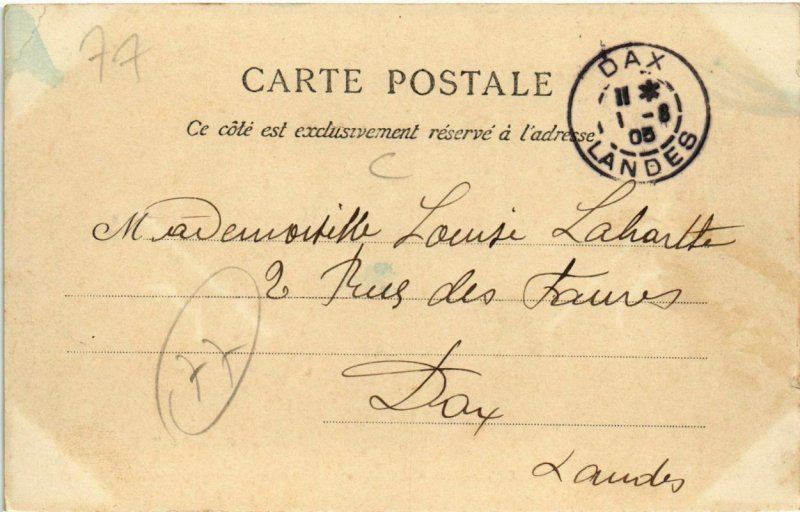 77
CARTE POSTALE
Ce côté est exclusivement réservé à l'adresse
DAX
11 *
1 - 8
05
LANDES
C
Mademoiselle Louise Laharthe
2 Rue des Faures
77
Dax
Landes